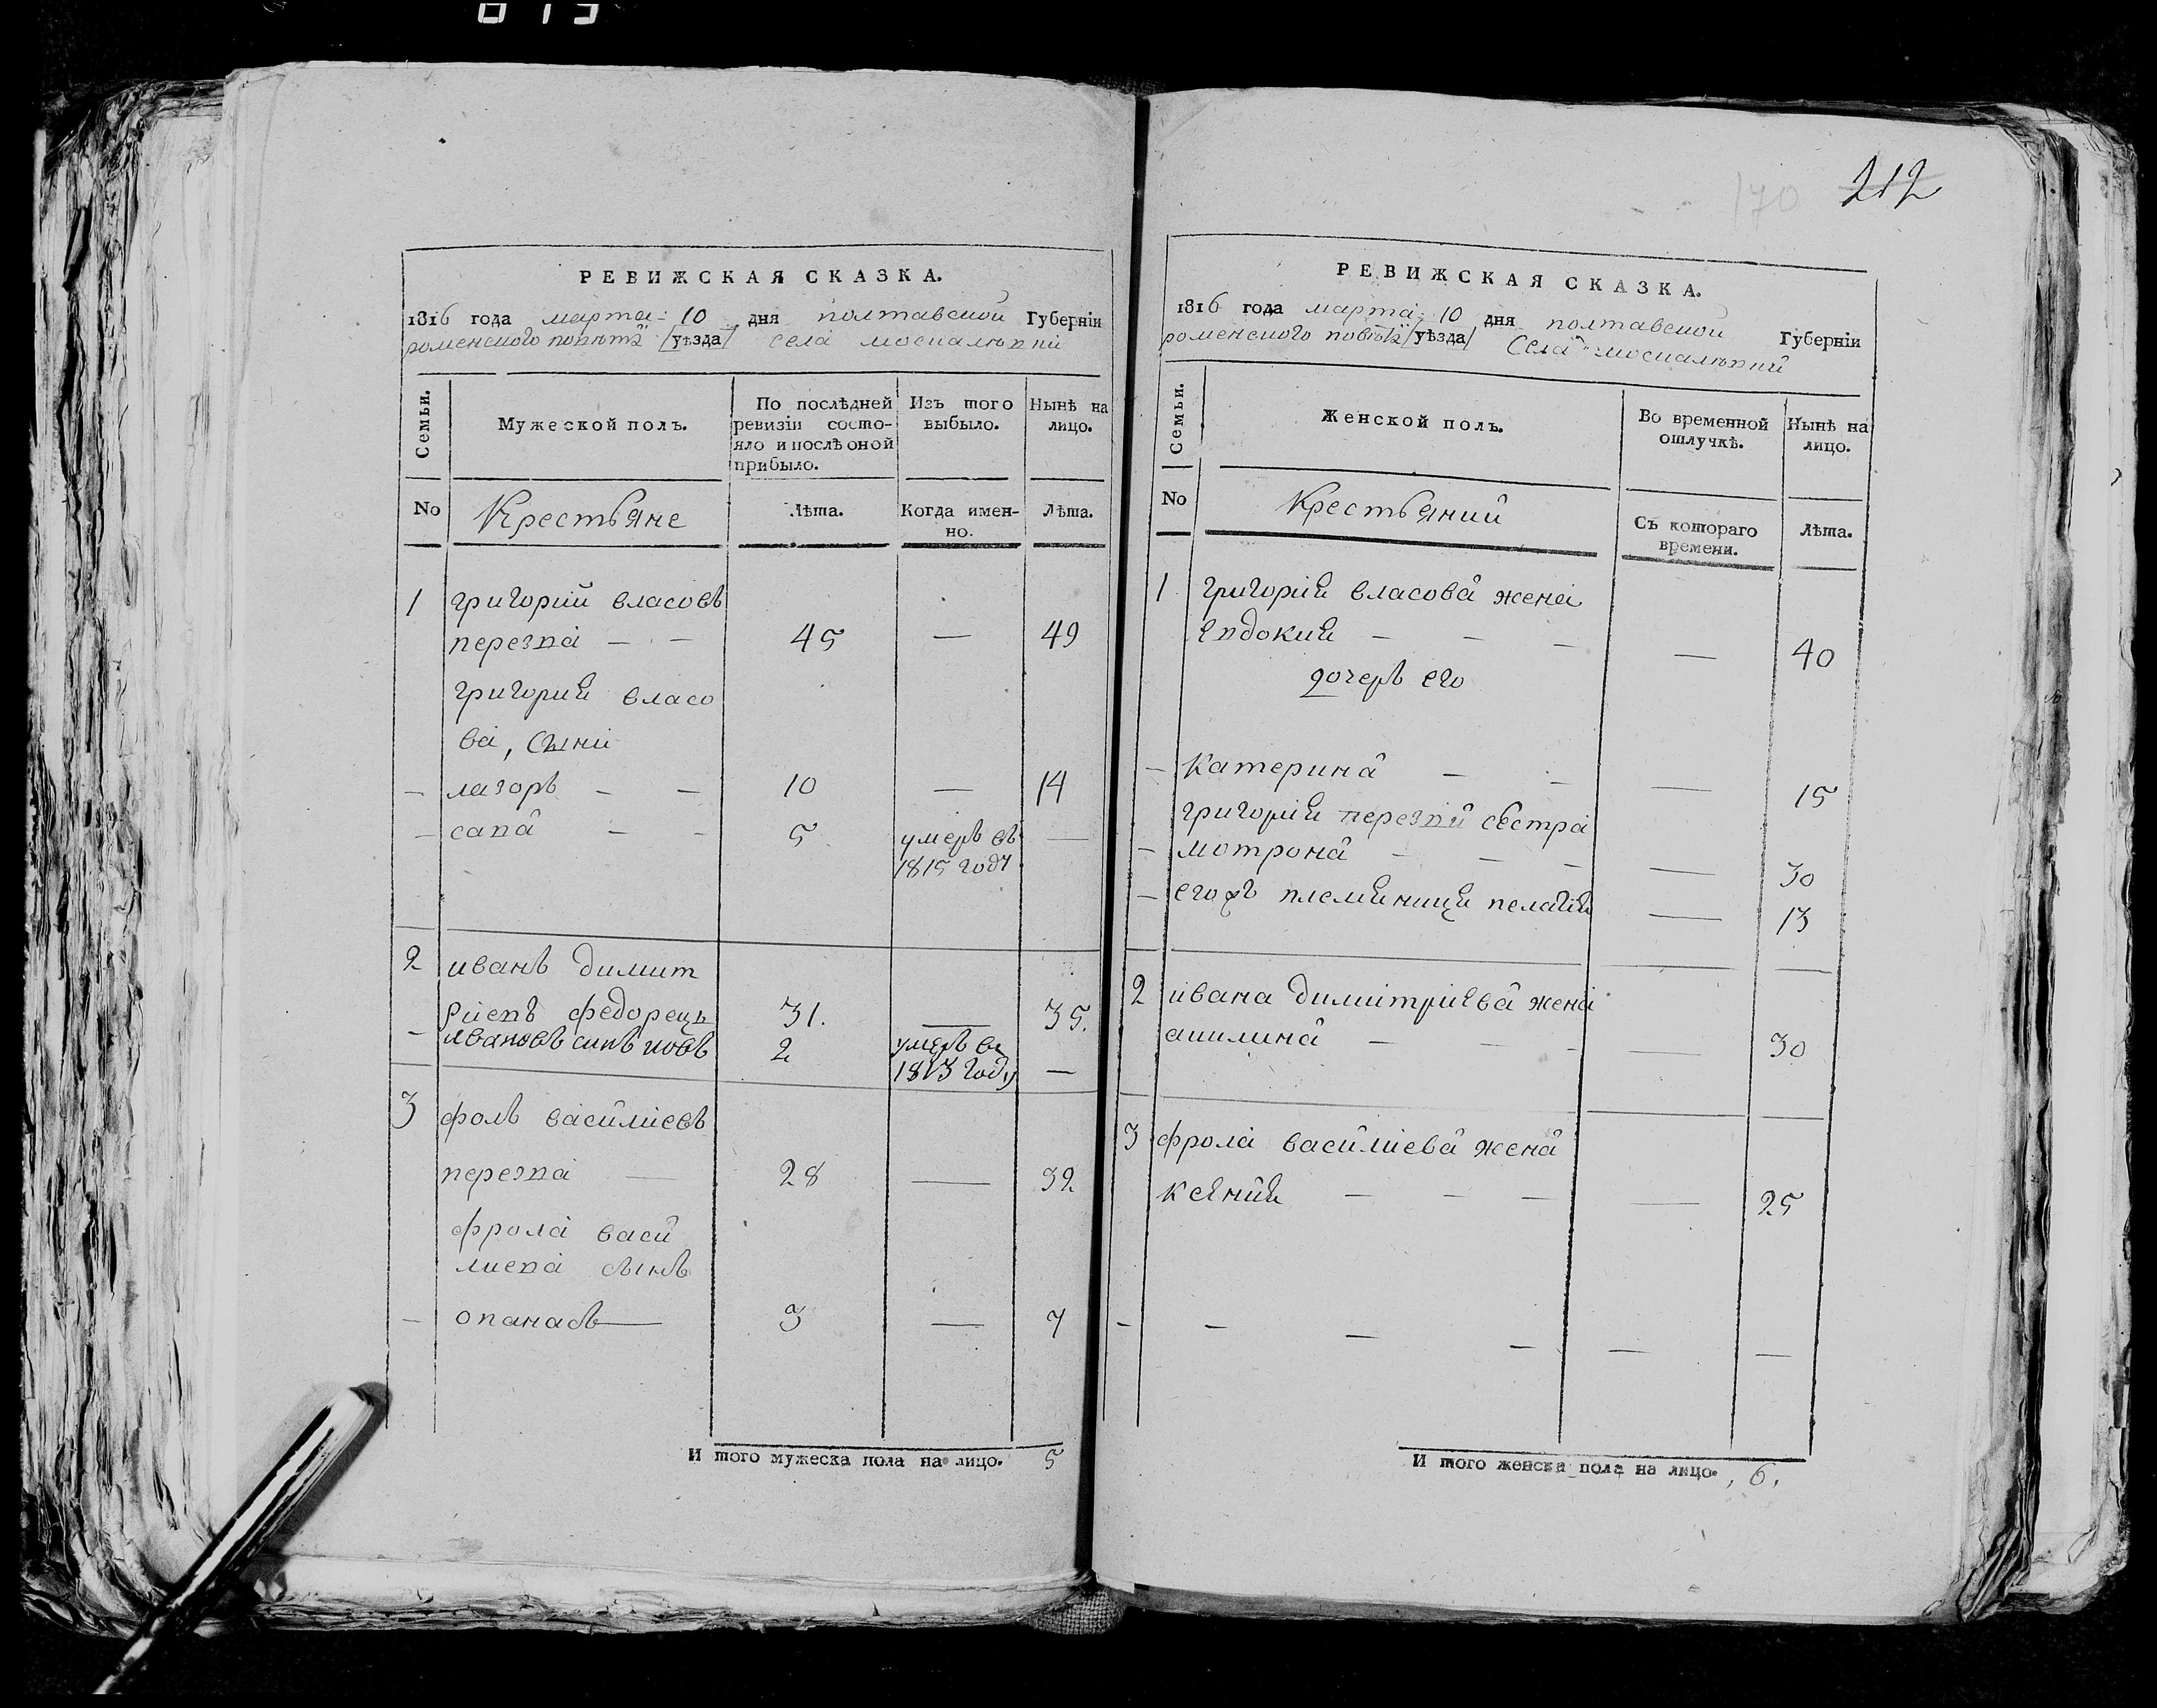 РЕВИЖСКАЯ СКАЗКА.
1816 года марта 10 дня полтавской Губерніи
роменского повѣта [уѣзда] села москалювки
Семьи.
Мужеской полъ.
По послѣдней ревизіи состо-
яло и послѣ оной
прибыло.
Изъ того
выбыло.
Нынѣ на
лицо.
No Крестьяне Лѣта. Когда имен-
но. Лѣта.
1 григорий власовъ
перезва — — 45 — 49
григория власо
ва, сыни
— лазорь — — 10 — 14
— сава — — 5 умеръ въ —
1815 году
2 иванъ димит
риевъ федорець 31. — 35.
— ивановъ синъ иовъ 2 умеръ въ
1813 году —
3 фролъ василиевъ
перезва — 28 — 32
фрола васи
лиева сынъ
— опанасъ — 3 — 7
И того мужеска пола на лицо. 5
170 212
РЕВИЖСКАЯ СКАЗКА.
1816 года марта 10 дня полтавской Губерніи
роменского повѣта [уѣзда] села москалювки
Семьи.
Женской полъ.
Во временной
отлучкѣ.
Нынѣ на
лицо.
No Крестьяния Съ котораго
времени. Лѣта.
1 григория власова жена
евдокия — — — — 40
дочерь его
— катерина — — — 15
григория перезви сестра
— мотрона — — — — 30
— егожъ племяница пелагия — 13
2 ивана димитриева жена
акилина — — — — 30
3 фрола василиева жена
ксения — — — — 25
— — — — — —
И того женска пола на лицо. 6.